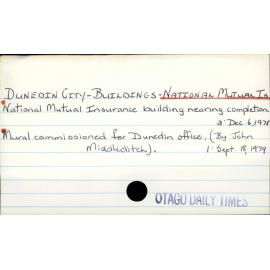 DUNEDIN CITY-BUILDINGS-NATIONAL MUTUAL Is
National Mutual Insurance building nearing completion.
3: Dec. 6, 1978
Mural commissioned for Dunedin office. (By John
Middleditch). 1: Sept. 18, 1979
OTAGO DAILY TIMES